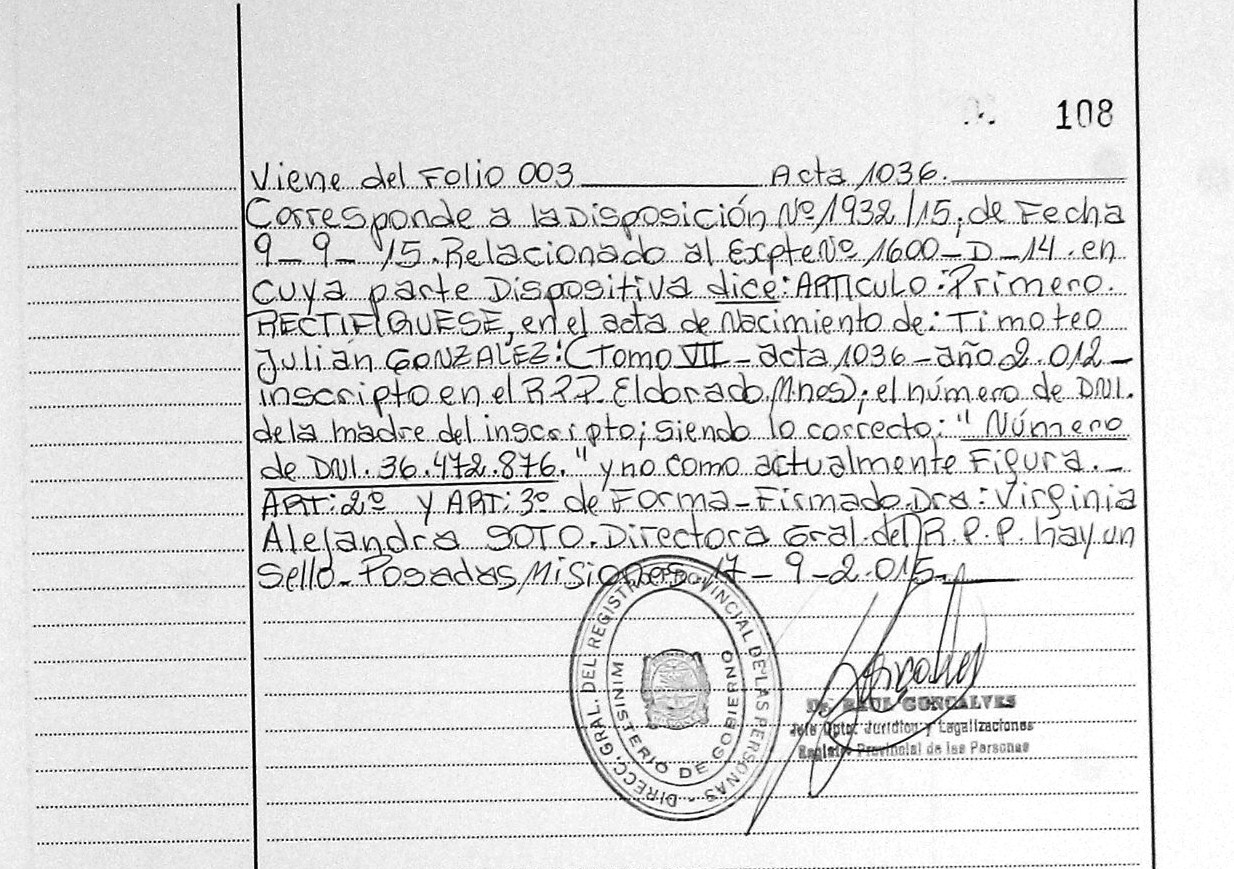 108
Viene del Folio 003 Acta 1036.
Corresponde a la Disposición Nº 1932/15, de Fecha
9-9-15. Relacionado al Expte Nº 1600-D-14. en
cuya parte Dispositiva dice: ARTICULO: Primero.
RECTIFIQUESE, en el acta de Nacimiento de: Timoteo
Julián GONZALEZ: (Tomo VII - acta 1036 - año 2.012 -
inscripto en el R.P.P. Eldorado, Mnes); el número de DNI.
de la madre del inscripto; siendo lo correcto: "Número
de DNI. 36.472.876." y no como actualmente Figura. -
ART: 2º y ART: 3º de Forma - Firmado. Dra: Virginia
Alejandra SOTO. Directora Gral. del R.P.P. hay un
Sello - Posadas, Misiones, 17-9-2.015.
DIRECC. GRAL. DEL REGISTRO PROVINCIAL DE LAS PERSONAS
MINISTERIO DE GOBIERNO
Dr. RAUL GONCALVES
Jefe Dpto. Jurídico y Legalizaciones
Registro Provincial de las Personas